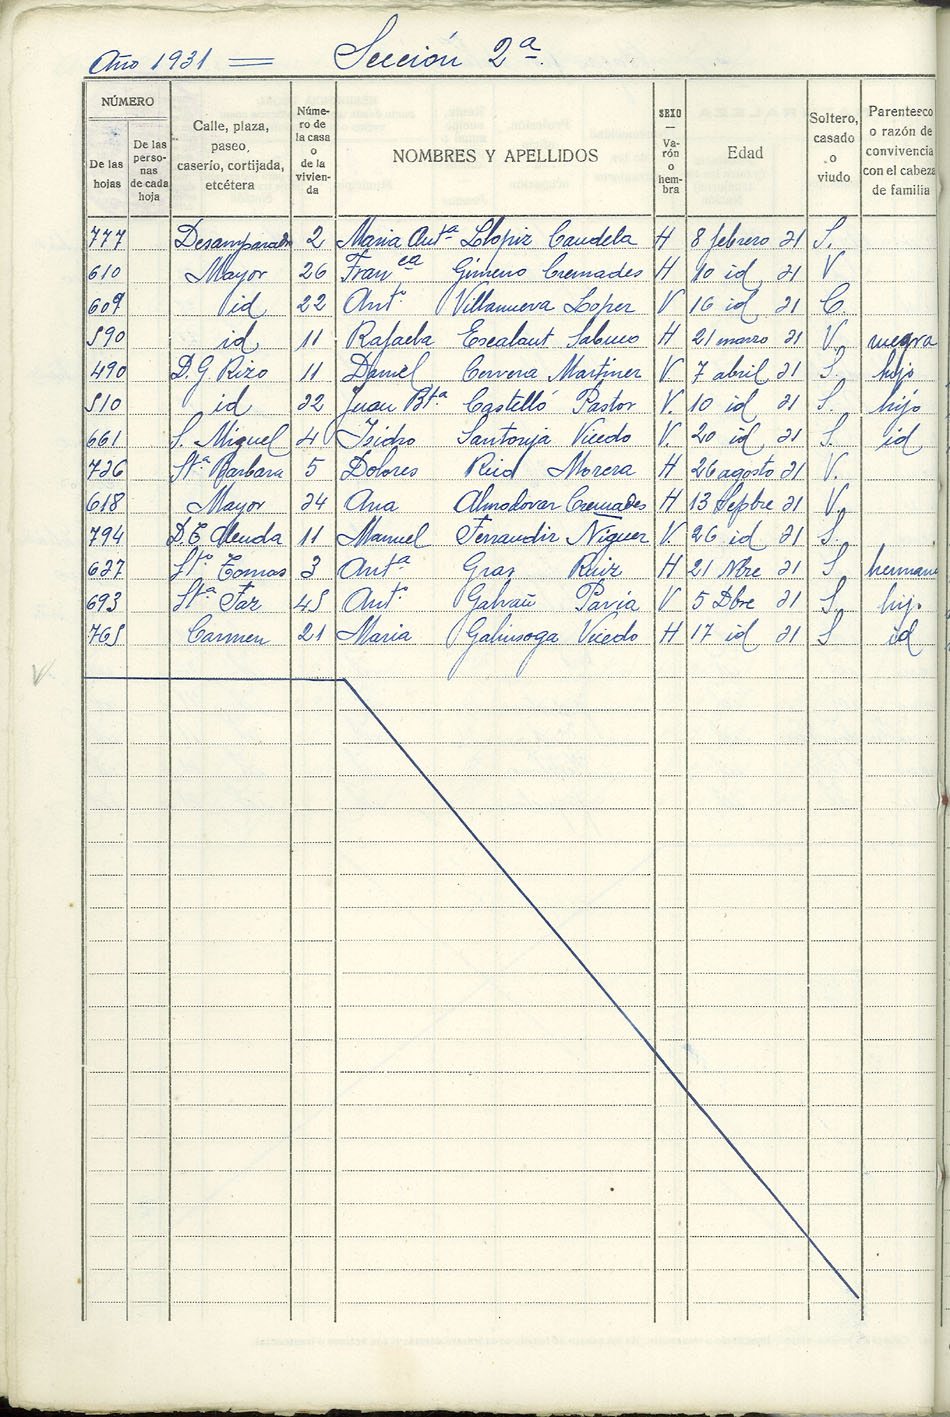 Año 1931 = Sección 2ª.
NÚMERO
De las hojas
De las perso- nas de cada hoja
Calle, plaza, paseo, caserío, cortijada, etcétera
Núme- ro de la casa o de la vivien- da
NOMBRES Y APELLIDOS
SEXO — Va- rón o hem- bra
Edad
Soltero, casado o viudo
Parentesco o razón de convivencia con el cabeza de familia
777 Desamparados 2 Maria Antª Llopiz Candela H 8 febrero 31 S.
610 Mayor 26 Franca Gimeno Cremades H 10 id 31 V
609 id 22 Antº Villanueva Lopez V 16 id 31 C.
590 id 11 Rafaela Escalant Sabuco H 21 marzo 31 V. suegra
490 D. G Rizo 11 Daniel Cervera Martinez V. 7 abril 31 S. hijo
510 id 22 Juan Btª Castelló Pastor V. 10 id 31 S. hijo
661 S. Miguel 40 Isidro Santonja Vicedo V. 20 id 31 S. id
726 Stª Barbara 5 Dolores Rico Morera H 26 agosto 31 V.
618 Mayor 34 Ana Almodovar Cremades H 13 Sepbre 31 V.
794 D. E Alenda 11 Manuel Ferrandiz Niguez V. 26 id 31 S.
627 Stº Tomas 3 Antª Gras Ruiz H 21 Nbre 31 S
693 Stª Faz 45 Antº Galvañ Pavia V 5 Dbre 31 S. hijo
765 Carmen 21 Maria Galinsoga Vicedo H 17 id 31 S id